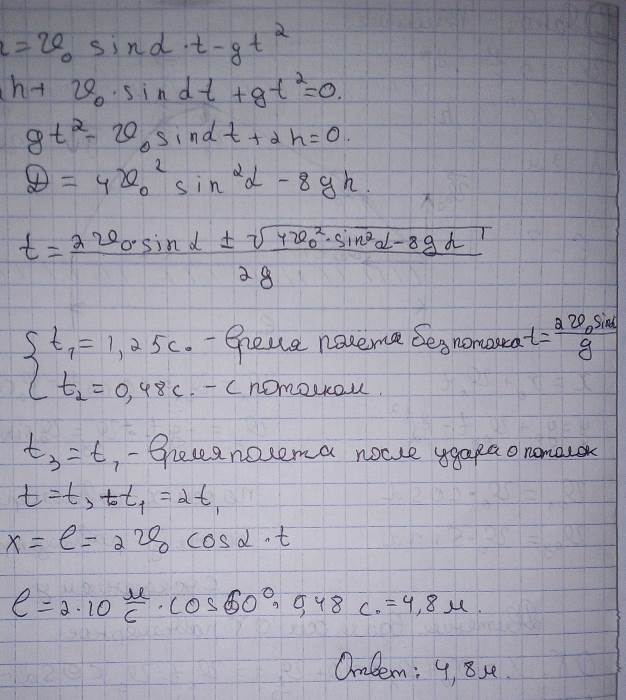 = 2υ₀ sin α · t - gt²
h + υ₀ · sin α t + gt² = 0.
gt² - 2υ₀ sin α t + 2h = 0.
D = 4υ₀² sin² α - 8gh.
t = (2υ₀ · sin α ± √(4υ₀² · sin² α - 8gh)) / 2g
{ t₁ = 1,25 с. - время полёта без потолка t = 2υ₀ sin α / g
t₂ = 0,48 с. - с потолком.
t₃ = t₁ - время полета после удара о потолок
t = t₃ + t₁ = 2t₁
x = ℓ = 2υ₀ cos α · t
ℓ = 2 · 10 м/с · cos 60° · 0,48 с. = 4,8 м.
Ответ: 4,8 м.